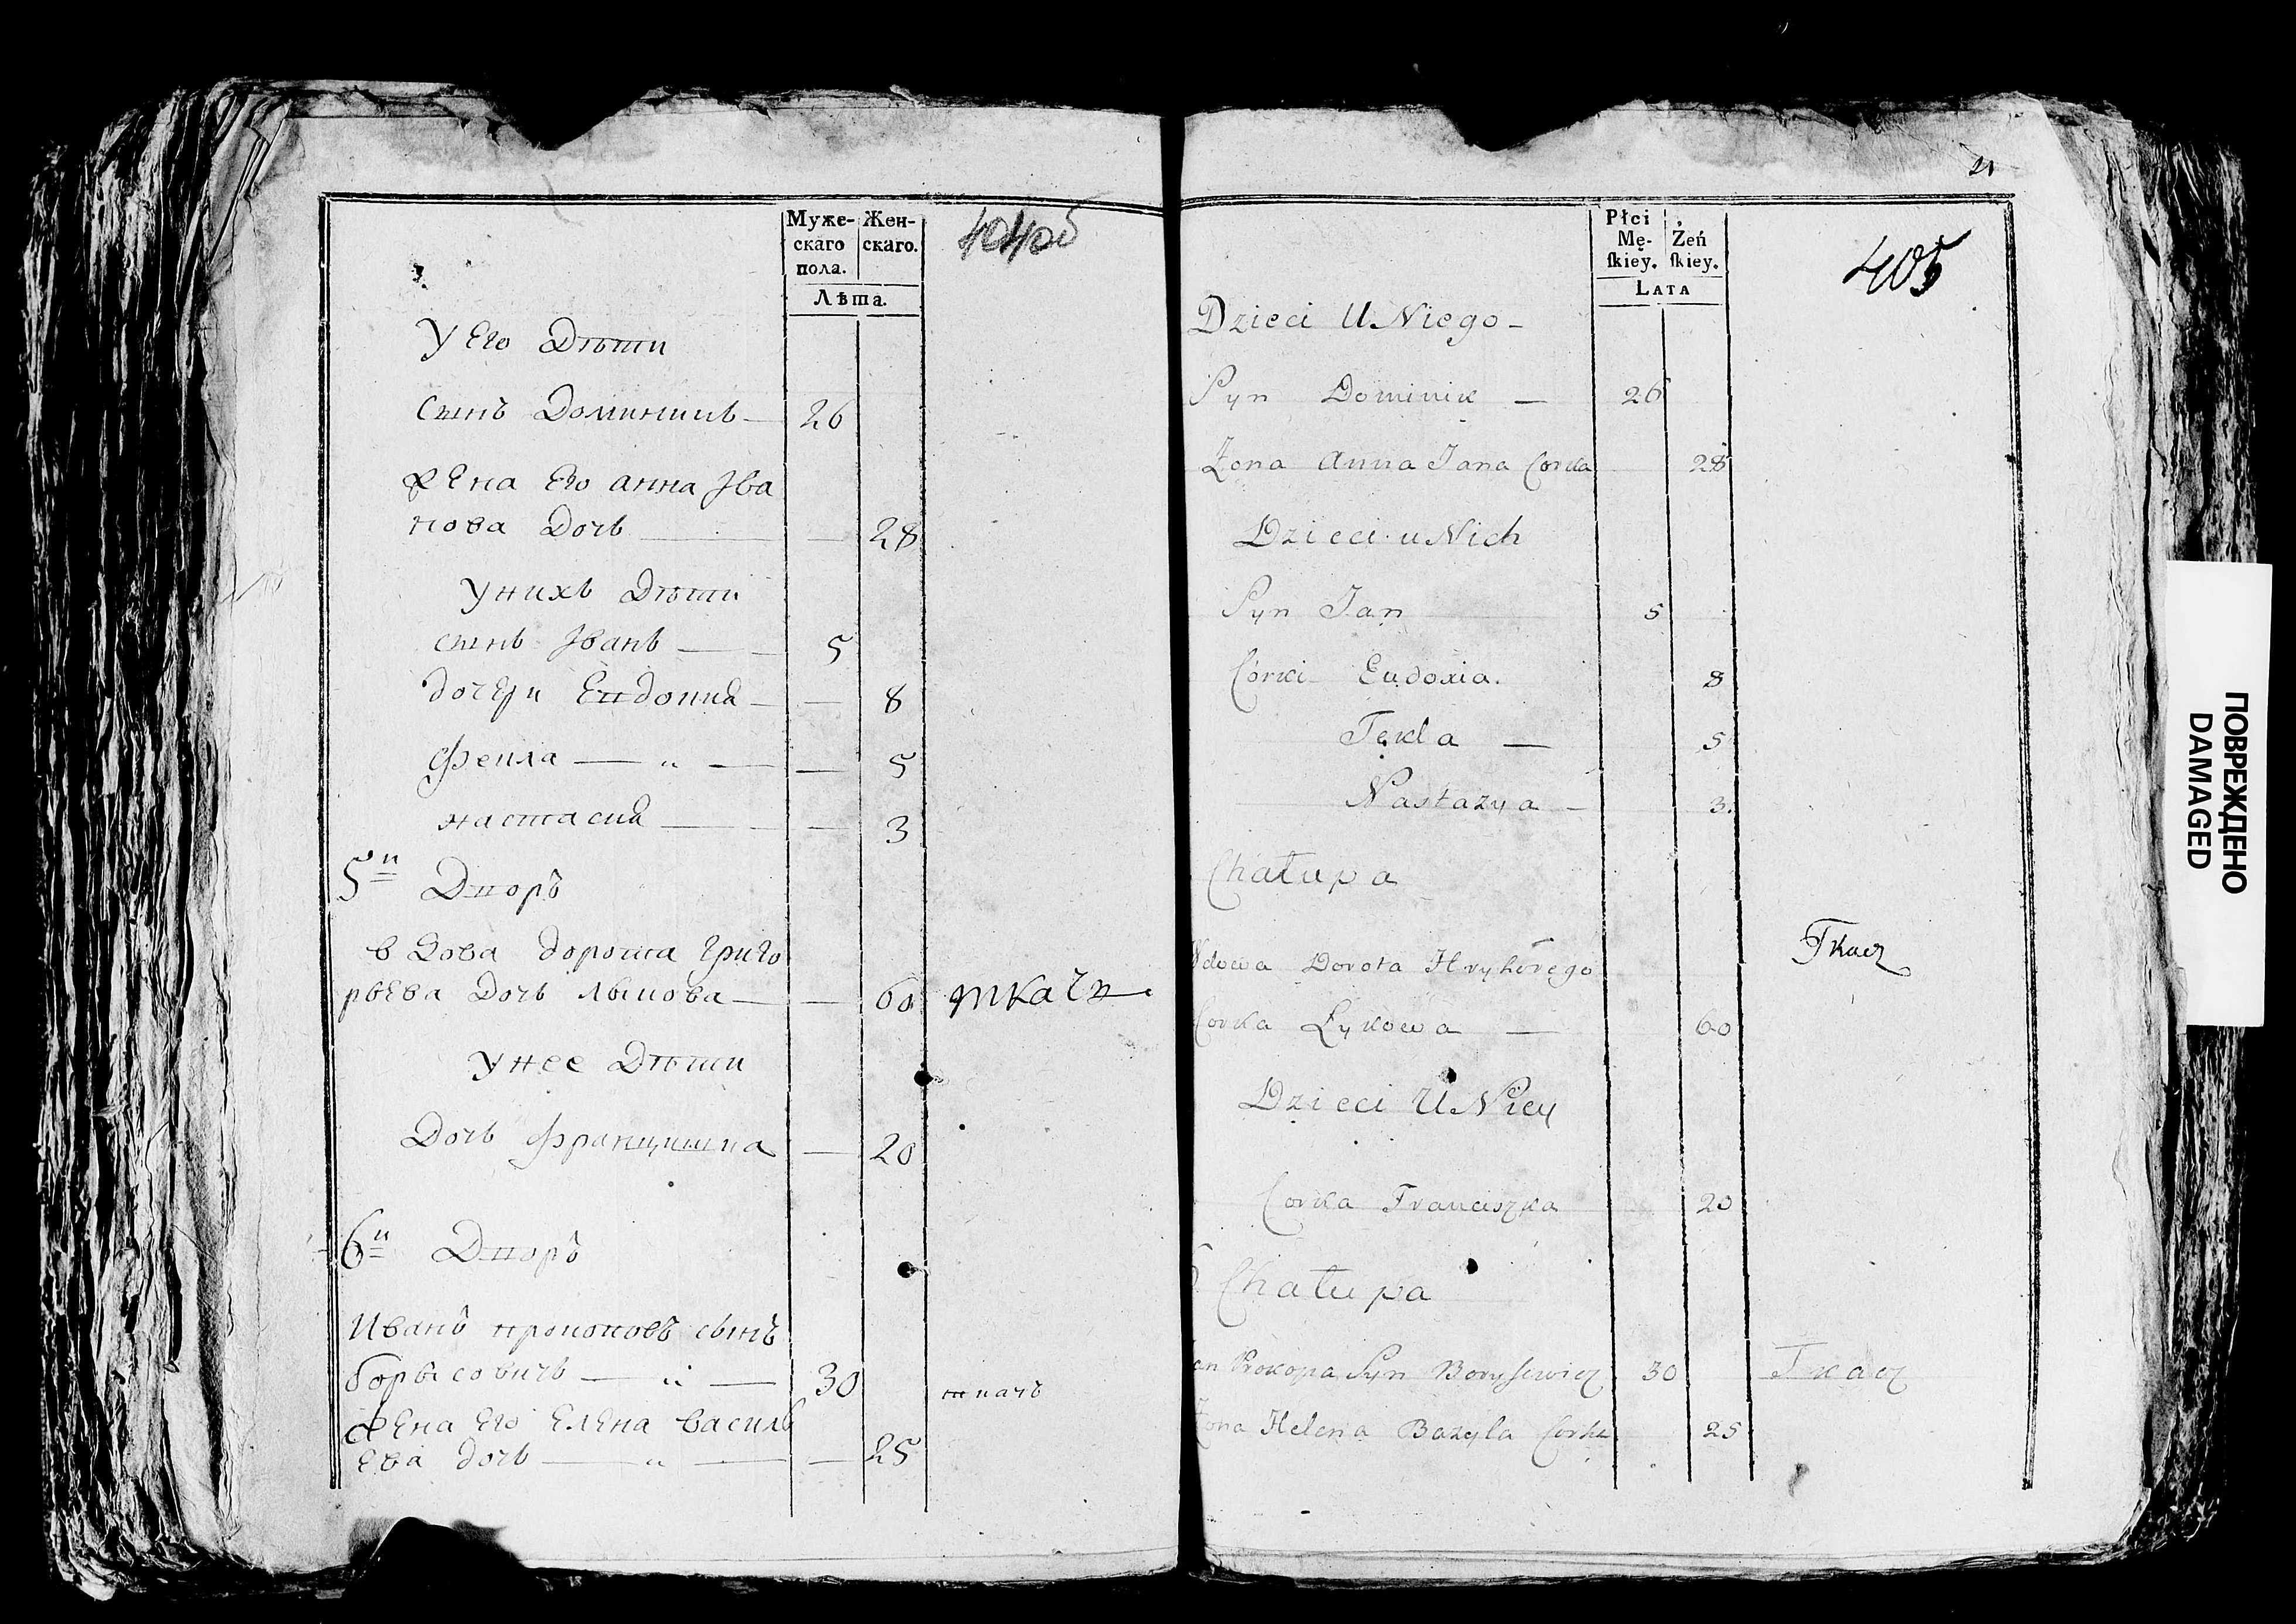 Муже-
скаго
пола.
Жен-
скаго.
Лѣта.
404об
У Его Дѣти
сынъ Доминикъ — 26
Жена Его анна Ива
нова Дочь — 28
У нихъ Дѣти
сынъ Иванъ — 5
дочери Евдокия — 8
Фекла — " — 5
настасия — 3
5й Дворъ
вдова дорота Григо
рьева Дочь лыкова — 60 ткачи
У нее Дѣти
Дочь Францишка — 20
6й Дворъ
Иванъ прокоповъ сынъ
борысовичъ — " — 30 ткачъ
Жена Его Елена василь
ева дочь — " — 25
21
Płci
Mę-
ſkiey.
Żeń
ſkiey.
LATA
405
Dzieci U Niego —
Syn Dominik — 26
Żona Anna Jana Corka 28
Dzieci u Nich
Syn Jan 5
Córki Eudoxia. 8
Tekla — 5
Nastazya — 3.
Chałupa
Wdowa Dorota Hryhorego Tkacz
Corka Łykowa — 60
Dzieci U Niey
Corka Franciszka 20
6 Chałupa
Jan Prokopa Syn Borysewicz 30 Tkacz
Żona Helena Bazyla Corka 25
ПОВРЕЖДЕНО
DAMAGED